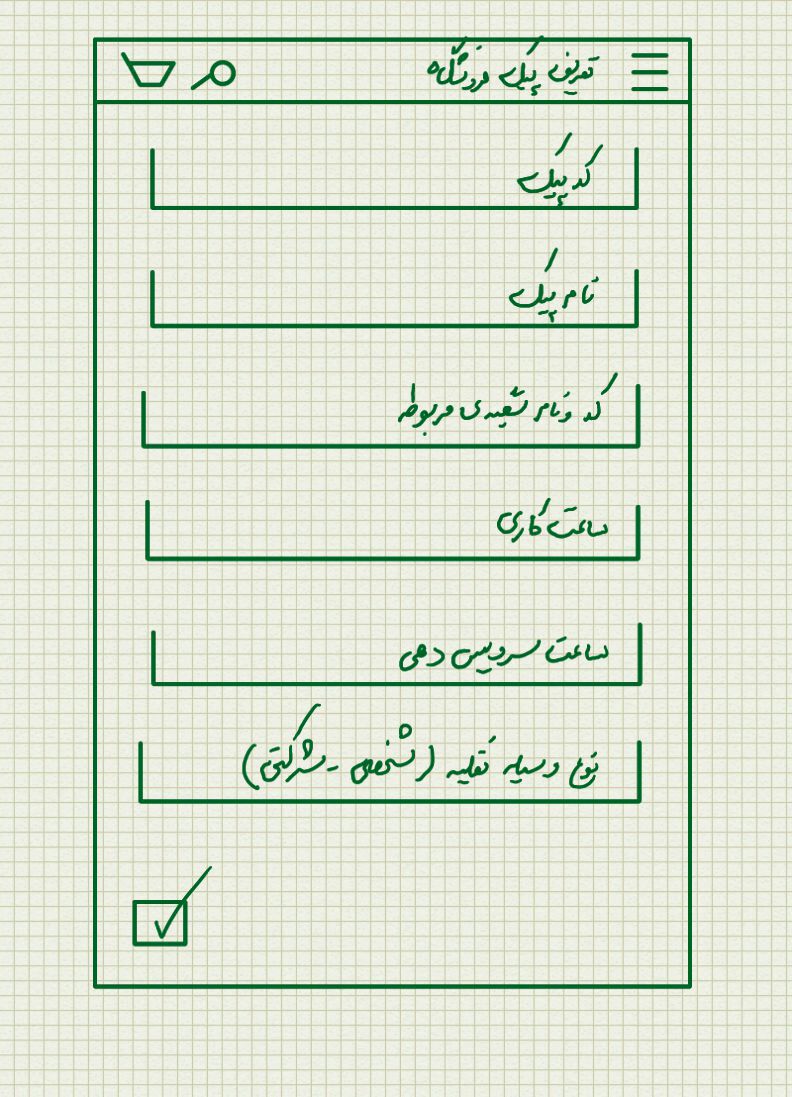 تعریف پیک فروشگاه
کد پیک
نام پیک
کد و نام شعبه‌ی مربوطه
ساعت کاری
ساعت سرویس دهی
نوع وسیله نقلیه (شخصی - شرکتی)